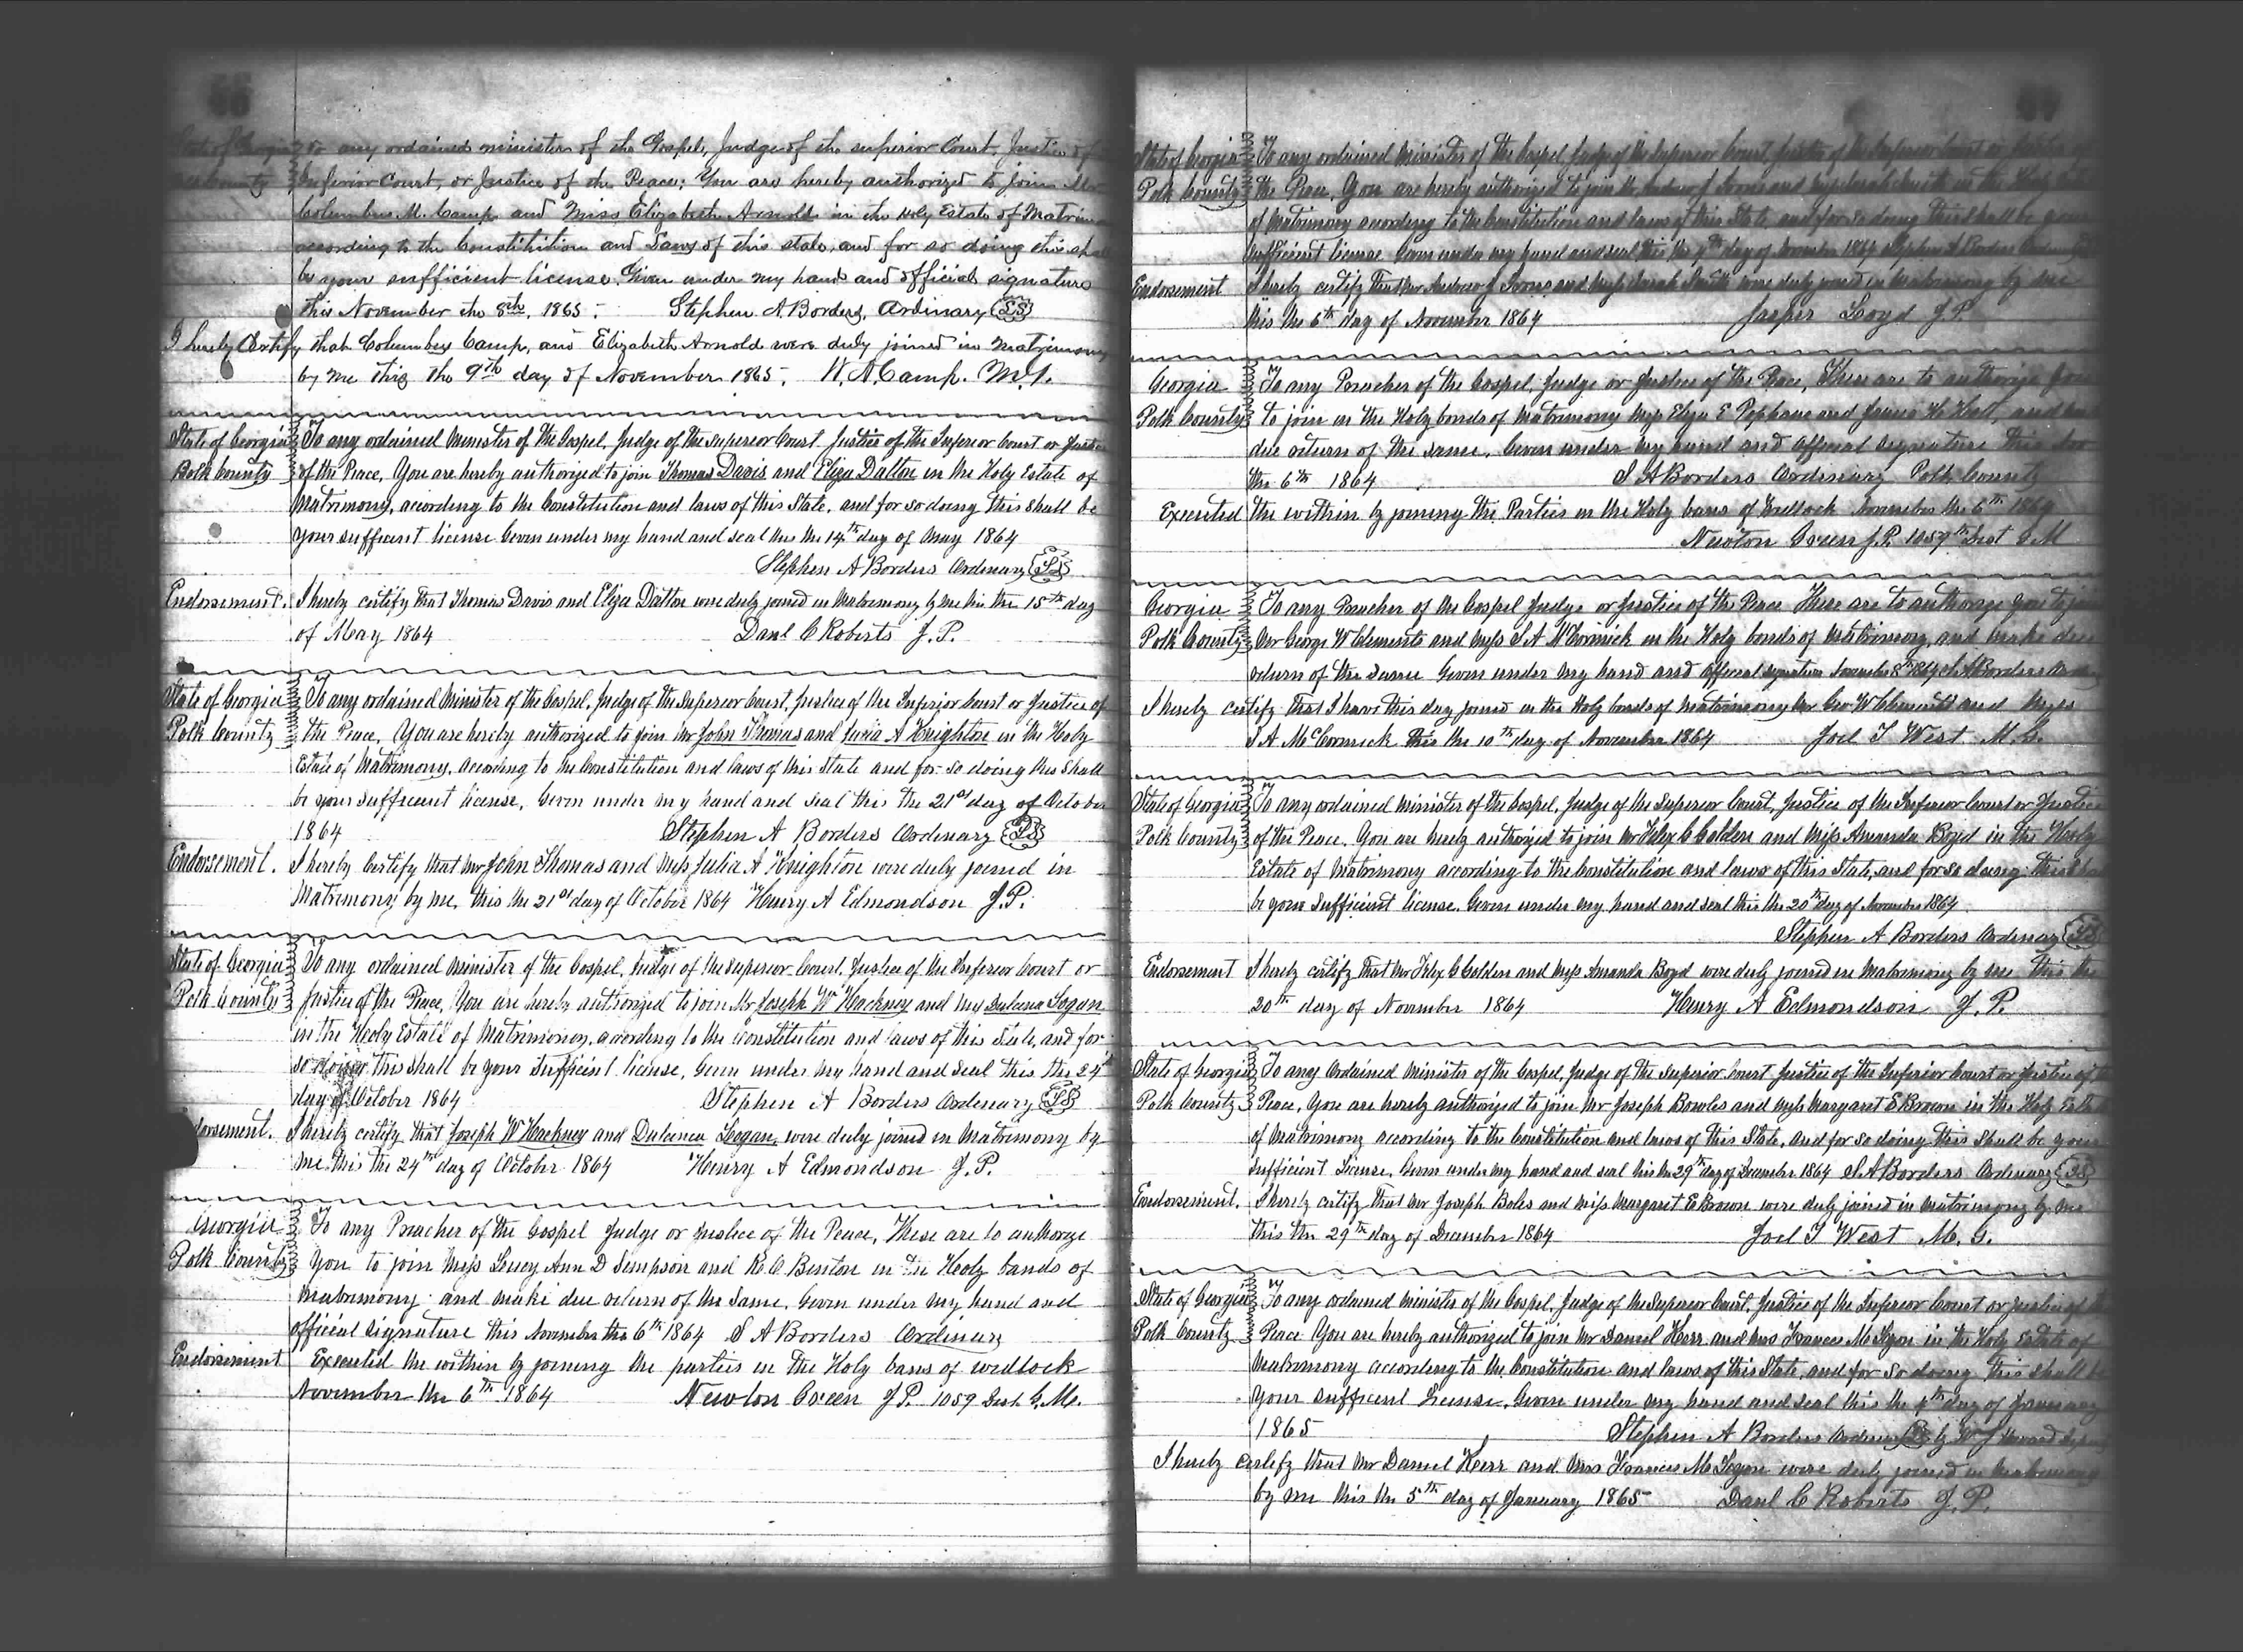 State of Georgia to any ordained minister of the Gospel, Judge of the superior Court, Justice of
County Inferior Court, or Justice of the Peace; You are hereby authorized to join Mr
Columbus M. Camp and Miss Elizabeth Arnold in the Holy Estate of Matrim
according to the Constitution and Laws of this state, and for so doing this sha
be your sufficient license. Given under my hand and official signature
this November the 8th, 1865. Stephen A. Borders, Ordinary LS
I hereby Certify that Columbus Camp, and Elizabeth Arnold were duly joined in Matrimony
by me this the 9th day of November 1865. W. A. Camp. M.G.
State of Georgia To any ordained Minister of the Gospel, Judge of the Superior Court, Justice of the Inferior Court or Justice
Polk County of the Peace, You are hereby authorized to join Thomas Davis and Eliza Dalton in the Holy Estate of
Matrimony, according to the Constitution and laws of this State, and for so doing this shall be
your sufficient license Given under my hand and seal this the 14th day of May 1864
Stephen A Borders Ordinary LS
Endorsement. I hereby certify that Thomas Davis and Eliza Dalton were duly joined in Matrimony by me this the 15th day
of May 1864 Danl C Roberts J.P.
State of Georgia To any ordained Minister of the Gospel, Judge of the Superior Court, Justice of the Inferior Court or Justice of
Polk County the Peace, You are hereby authorized to join Mr John Thomas and Julia A Knighton in the Holy
Estate of Matrimony, according to the Constitution and laws of this State and for so doing this shall
be your sufficient license, Given under my hand and seal this the 21st day of October
1864 Stephen A Borders Ordinary LS
Endorsement. I hereby Certify that Mr John Thomas and Miss Julia A Knighton were duly joined in
Matrimony by me, this the 21st day of October 1864 Henry A Edmondson J.P.
State of Georgia To any ordained Minister of the Gospel, Judge of the Superior Court, Justice of the Inferior Court or
Polk County Justice of the Peace, You are hereby authorized to join Mr Joseph W Hackney and Miss Dulcenea Logan
in the Holy Estate of Matrimony, according to the Constitution and laws of this State, and for
so doing this shall be your sufficient license, Given under my hand and seal this the 24th
day of October 1864 Stephen A Borders Ordinary LS
dorsement. I hereby certify that Joseph W Hackney and Dulcenea Logan, were duly joined in Matrimony by
me this the 24th day of October 1864 Henry A Edmondson J.P.
Georgia To any Preacher of the Gospel Judge or Justice of the Peace, These are to authorize
Polk County You to join Miss Lucy Ann D Simpson and R C Benton in the Holy bands of
Matrimony and make due return of the same, Given under my hand and
official signature this November the 6th 1864 S A Borders Ordinary
Endorsement Executed the within by joining the parties in the Holy bans of wedlock
November the 6th 1864 Newton Green J.P. 1059 Dist G.M.
State of Georgia To any ordained Minister of the Gospel, Judge of the Superior Court, Justice of the Inferior Court or Justice of
Polk County the Peace, You are hereby authorized to join Mr Andrew J and Miss Sarah Smith in the Holy
of Matrimony according to the Constitution and laws of this State, and for so doing this shall be your
sufficient license Given under my hand and seal this the day of November 1864 Stephen A Borders Ordinary
Endorsement I hereby certify that Mr Andrew J and Miss Sarah Smith were duly joined in Matrimony by me
this the 6th day of November 1864 Jasper Loyd J.P.
Georgia To any Preacher of the Gospel, Judge or Justice of the Peace, These are to authorize you
Polk County to join in the Holy bonds of Matrimony Miss Eliza E and James H and
due return of the same, Given under my hand and official signature this Nov
the 6th 1864 S A Borders Ordinary Polk County
Executed the within by joining the Parties in the Holy bans of Wedlock November the 6th 1864
Newton Green J.P. 1059th Dist G M
Georgia To any Preacher of the Gospel Judge or Justice of the Peace These are to authorize you to join
Polk County Mr George W Clements and Miss S A McCormick in the Holy bonds of Matrimony, and make due
return of the same Given under my hand and official signature November 8th 1864 S A Borders
I hereby certify that I have this day joined in the Holy bonds of Matrimony Mr Geo W Clements and Miss
S A McCormick this the 10th day of November 1864 Joel T West M.G.
State of Georgia To any ordained Minister of the Gospel, Judge of the Superior Court, Justice of the Inferior Court or Justice
Polk County of the Peace, You are hereby authorized to join Mr C Golden and Miss Amanda Boyd in the Holy
Estate of Matrimony according to the Constitution and laws of this State, and for so doing this sha
be your sufficient license, Given under my hand and seal this the 20th day of November 1864
Stephen A Borders Ordinary LS
Endorsement I hereby certify that Mr C Golden and Miss Amanda Boyd were duly joined in Matrimony by me this the
20th day of November 1864 Henry A Edmondson J.P.
State of Georgia To any Ordained Minister of the Gospel, Judge of the Superior Court Justice of the Inferior Court or Justice of the
Polk County Peace, You are hereby authorized to join Mr Joseph Bowles and Miss Margaret E Brown in the Holy Estate
of Matrimony according to the Constitution and laws of this State, and for so doing this shall be your
sufficient License, Given under my hand and seal this the 29th day of December 1864 S A Borders Ordinary LS
Endorsement. I hereby certify that Mr Joseph Boles and Miss Margaret E Brown were duly joined in Matrimony by me
this the 29th day of December 1864 Joel T West M.G.
State of Georgia To any ordained Minister of the Gospel, Judge of the Superior Court, Justice of the Inferior Court or Justice of
Polk County Peace You are hereby authorized to join Mr Daniel Kerr and Mrs Frances M in the Holy Estate of
Matrimony according to the Constitution and laws of this State, and for so doing this shall
your sufficient License, Given under my hand and seal this the 4th day of January
1865 Stephen A Borders Ordinary LS by W J Howard
I hereby certify that Mr Daniel Kerr and Mrs Frances M were duly joined in Matrimony
by me this the 5th day of January 1865 Danl C Roberts J.P.